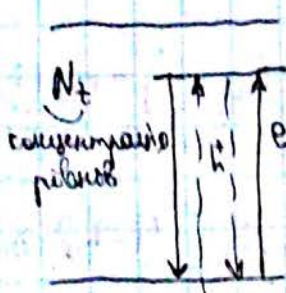 Nt
концентрація
рівнів
h
e